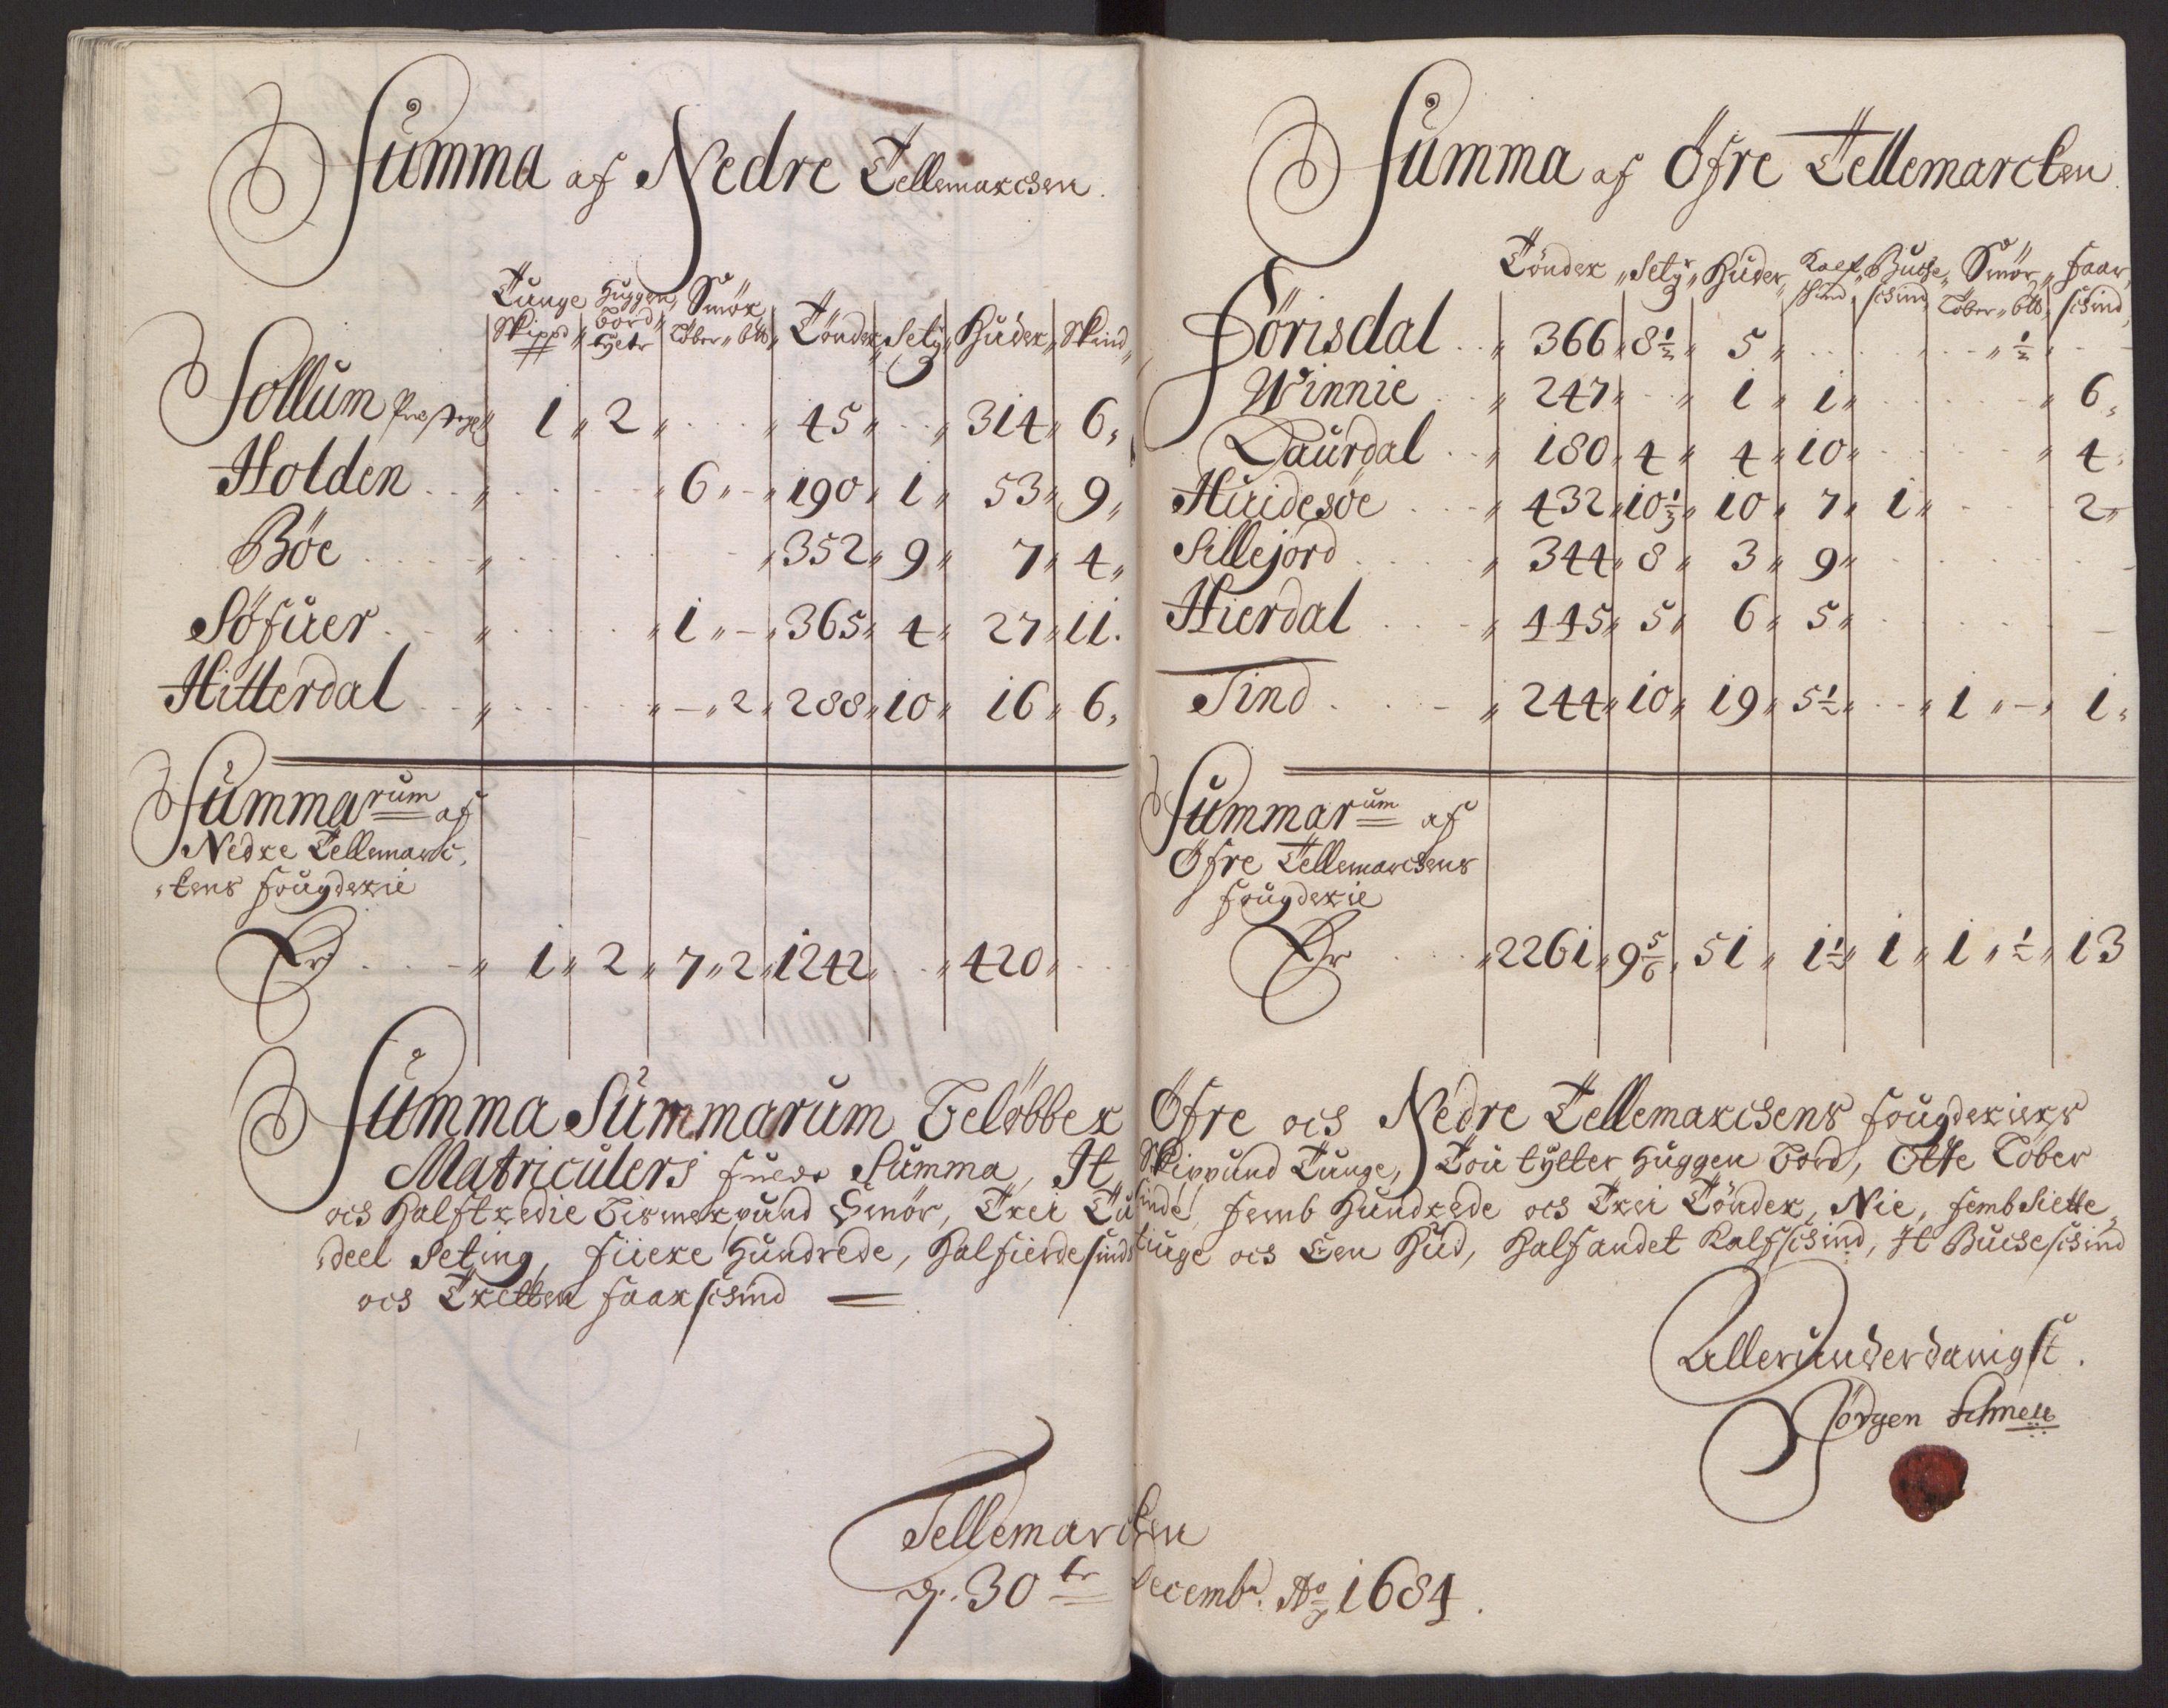 Summa af Nedre Tellemarchen.
Tunge Skippd „ Huggen bord tylt „ Smör Löber „ btt „ Tönder „ Sety „ Huder „ Skind „
Sollum Præstegl „ 1 „ 2 „ . . . „ 45 „ . . „ 314 „ 6 „
Holden . . „ . . . . . „ 6 „ - „ 190 „ 1 „ 53 „ 9 „
Böe . . . . „ . . . . . „ 352 „ 9 „ 7 „ 4 „
Söfuer . . „ . . . . „ 1 „ – „ 365 „ 4 „ 27 „ 11 .
Hitterdal . . „ . . . . „ – „ 2 „ 288 „ 10 „ 16 „ 6 „
Summarum af
Nedre Tellemarc-
kens fougderie
Er . . . „ 1 „ 2 „ 7 „ 2 „ 1242 „ . . „ 420 „ . . .
Summa af Öfre Tellemarcken.
Tönder „ Setyr „ Huder „ Kalf skind „ Bucke schind „ Smör Löber „ btt „ faar schind „
Förisdal . . „ 366 „ 8½ „ 5 „ . . . . . . „ ½ „ - -
Winnie . . „ 247 „ . . „ 1 „ 1 „ . . . . . „ 6 „
Laurdal . . „ 180 „ 4 „ 4 „ 10 „ . . . . „ 4 „
Huidesöe . . . „ 432 „ 10⅓ „ 10 „ 7 „ 1 „ . . . 2 „
Sillejord . . . . „ 344 „ 8 „ 3 „ 9 „ . . . . . –
Hierdal . . . „ 445 „ 5 „ 6 „ 5 „ . . . . . –
Tind . . . „ 244 „ 10 „ 19 „ 5½ „ . . „ 1 „ – „ 1 „
Summarum af
Öfre Tellemarchens
fougderie
Er . . . „ 2261 „ 9⅚ „ 51 „ 1½ „ 1 „ 1 „ ½ „ 13
Summa Summarum Belöbber Öfre och Nedre Tellemarchens fougderiers
Matriculers Summa, It Skippund Tunge, Tou tylter Huggen Bord, Otte Löber
och Halftredie Bismerpund Smör, Trei Tusinde, femb Hundrede och Trei Tönder, Nie, femb Siette
deel Seting, fiiere Hundrede, Halfierdesindstiuge och Een Hud, Halfandet Kalfschind, It Buckeschind
och Tretten faarschind
Allerunderdanigst.
Jörgen Schnell
Tellemarcken
d. 30te Decembr. Ao 1684.